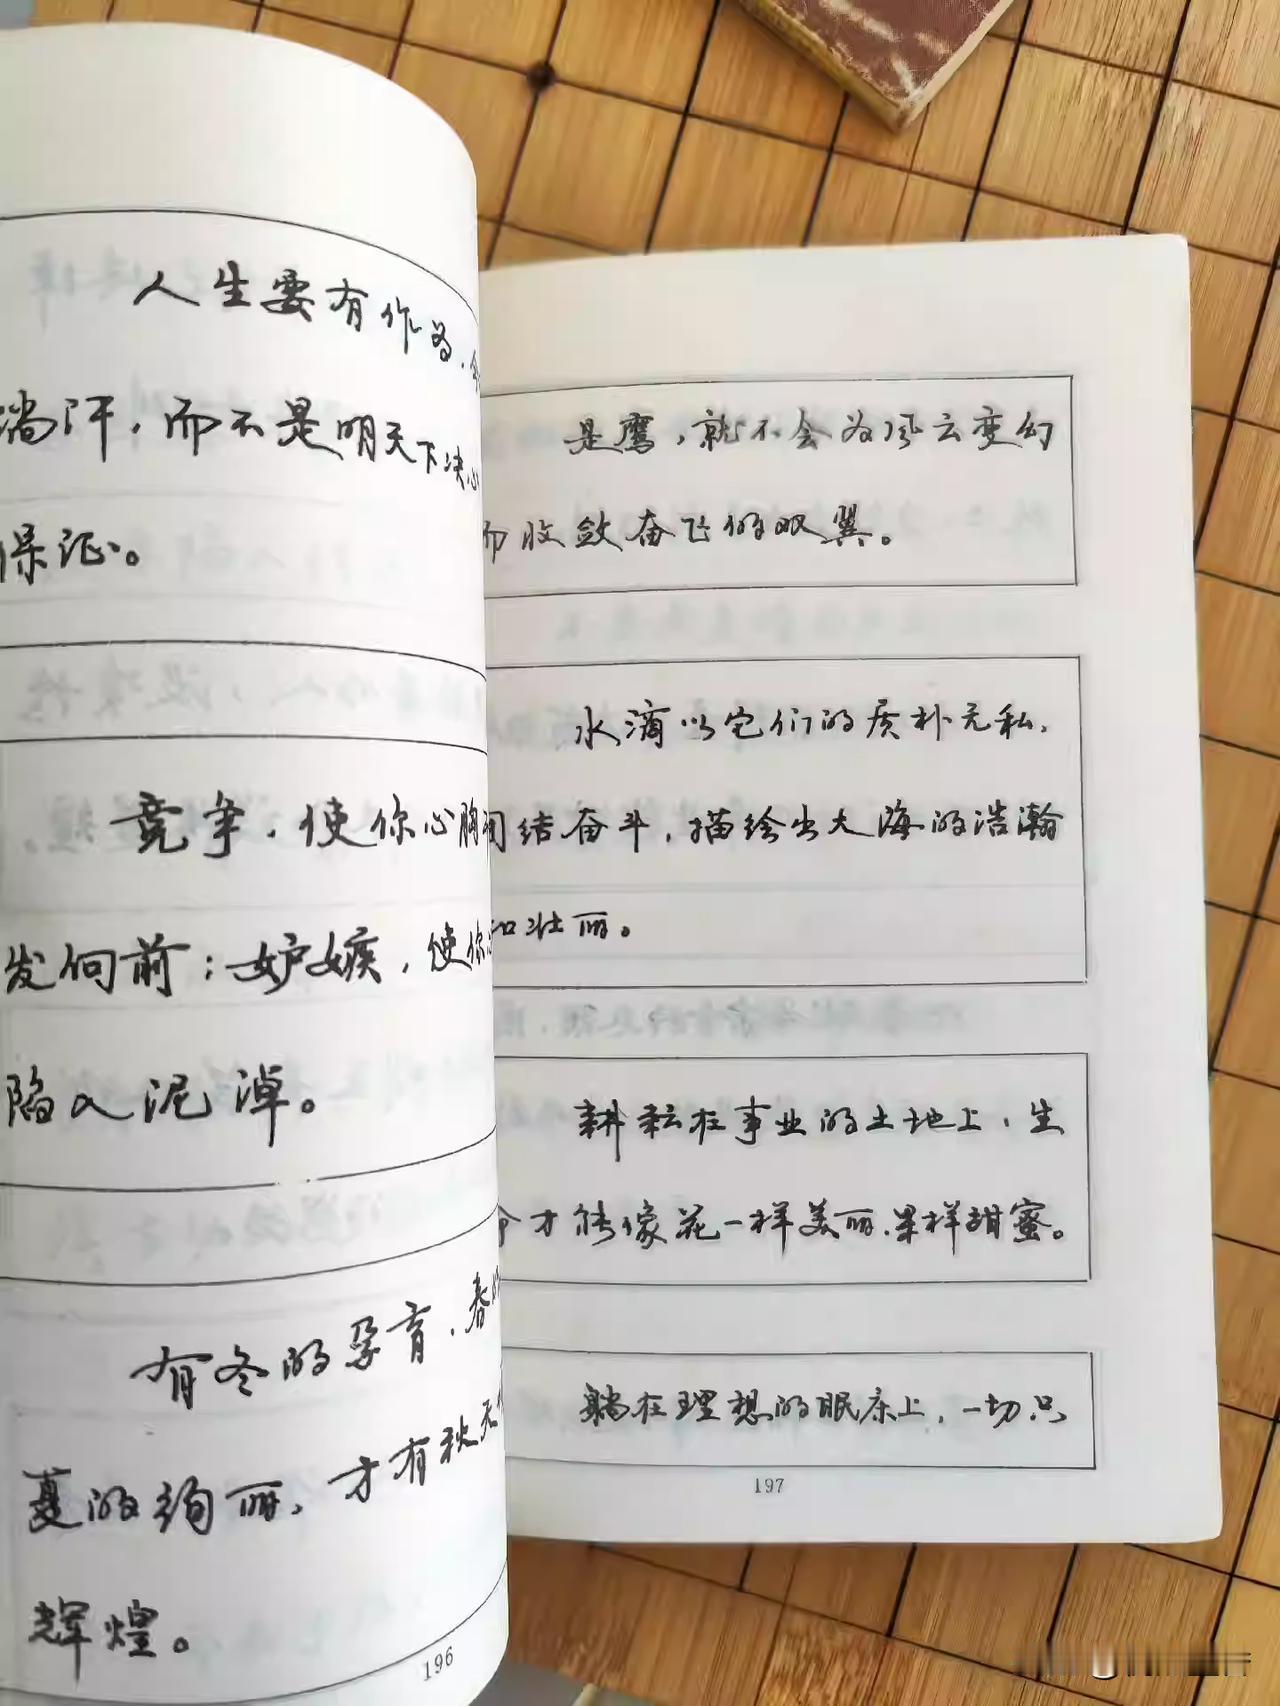 人生要有作为，
淌汗，而不是明天下决心
保证。
竞争，使你心胸
发向前；妒嫉，使你
陷入泥淖。
有冬的孕育，春
夏的绚丽，才有秋天
辉煌。
196
是鹰，就不会为风云变幻
而收敛奋飞的双翼。
水滴以它们的质朴无私，
团结奋斗，描绘出大海的浩瀚
和壮丽。
耕耘在事业的土地上，生
命才能像花一样美丽，果样甜蜜。
躺在理想的眠床上，一切只
197